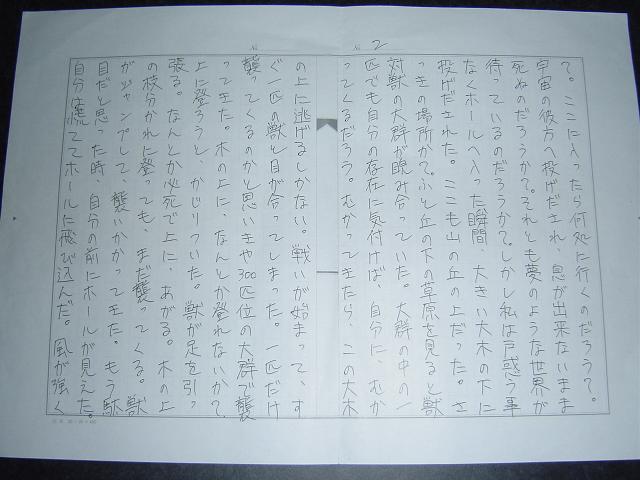 No. 2
No.
て。ここに入ったら何処に行くのだろう?。
宇宙の彼方へ投げだされ、息が出来ないまま
死ぬのだろうか?。それとも夢のような世界が
待っているのだろうか?。しかし私は戸惑う事
なくホールへ入った瞬間、大きい大木の下に
投げだされた。ここも山の丘の上だった。さ
っきの場所か?。ふと丘の下の草原を見ると獣
対獣の大群が睨み合っていた。大群の中の一
匹でも自分の存在に気付けば、自分に、むか
ってくるだろう。むかってきたら、この大木
の上に逃げるしかない。戦いが始まって、す
ぐ一匹の獣と目が合ってしまった。一匹だけ
襲ってくるのかと思いきや300匹位の大群で襲
ってきた。木の上に、なんとか登れないか?。
上に登ろうと、かじりついた。獣が足を引っ
張る。なんとか必死で上に、あがる。木の上
の枝分かれに登っても、まだ襲ってくる。獣
がジャンプして、襲いかかってきた。もう駄
目だと思った時、自分の前にホールが見えた。
自分は慌ててホールに飛び込んだ。風が強く